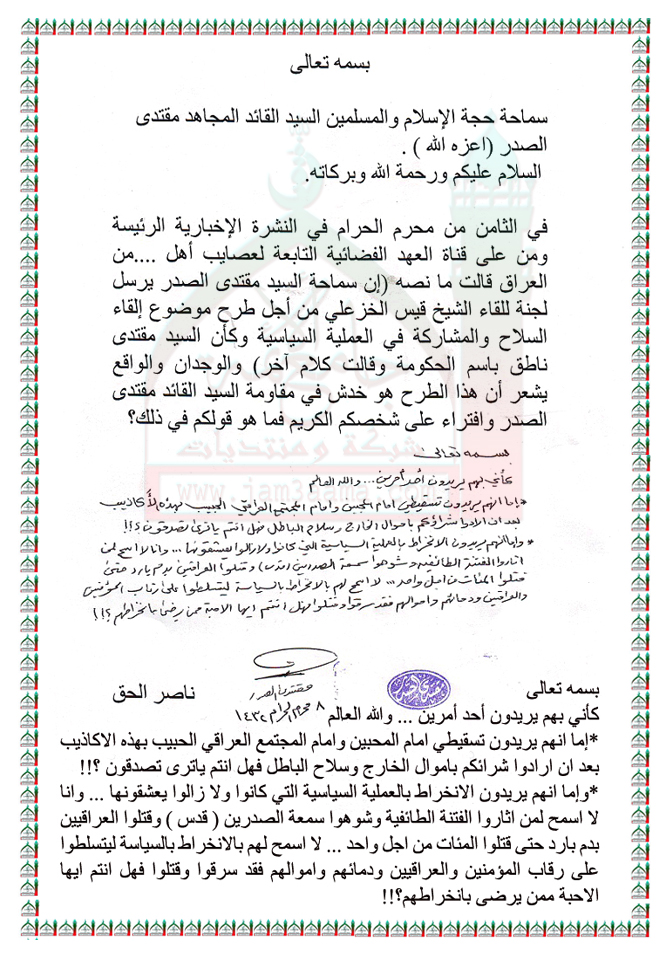 بسمه تعالى
سماحة حجة الإسلام والمسلمين السيد القائد المجاهد مقتدى
الصدر (اعزه الله ) .
السلام عليكم ورحمة الله وبركاته.
في الثامن من محرم الحرام في النشرة الإخبارية الرئيسة
ومن على قناة العهد الفضائية التابعة لعصايب أهل ....من
العراق قالت ما نصه (إن سماحة السيد مقتدى الصدر يرسل
لجنة للقاء الشيخ قيس الخزعلي من أجل طرح موضوع إلقاء
السلاح والمشاركة في العملية السياسية وكأن السيد مقتدى
ناطق باسم الحكومة وقالت كلام آخر) والوجدان والواقع
يشعر أن هذا الطرح هو خدش في مقاومة السيد القائد مقتدى
الصدر وافتراء على شخصكم الكريم فما هو قولكم في ذلك؟
شبكة ومنتديات
www.jam3aama.com
بسمه تعالى
كأني بهم يريدون أحد أمرين... والله العالم
*إما انهم يريدون تسقيطي امام المحبين وامام المجتمع العراقي الحبيب بهذه الأكاذيب
بعد ان ارادوا شرائكم باموال الخارج وسلاح الباطل فهل انتم ياترى تصدقون؟!!
*وإما انهم يريدون الانخراط بالعملية السياسية التي كانوا ولا زالوا يعشقونها... وانا لا اسمح لمن
اثاروا الفتنة الطائفية وشوهوا سمعة الصدرين (قدس) وقتلوا العراقيين بدم بارد حتى
قتلوا المئات من اجل واحد... لا اسمح لهم بالانخراط بالسياسة ليتسلطوا على رقاب المؤمنين
والعراقيين ودمائهم واموالهم فقد سرقوا وقتلوا فهل انتم ايها الاحبة ممن يرضى بانخراطهم؟!!
مقتدى الصدر
٨ محرم الحرام ١٤٣٢
ناصر الحق
بسمه تعالى
كأني بهم يريدون أحد أمرين ... والله العالم
*إما انهم يريدون تسقيطي امام المحبين وامام المجتمع العراقي الحبيب بهذه الاكاذيب
بعد ان ارادوا شرائكم باموال الخارج وسلاح الباطل فهل انتم ياترى تصدقون ؟!!
*وإما انهم يريدون الانخراط بالعملية السياسية التي كانوا ولا زالوا يعشقونها ... وانا
لا اسمح لمن اثاروا الفتنة الطائفية وشوهوا سمعة الصدرين ( قدس ) وقتلوا العراقيين
بدم بارد حتى قتلوا المئات من اجل واحد ... لا اسمح لهم بالانخراط بالسياسة ليتسلطوا
على رقاب المؤمنين والعراقيين ودمائهم واموالهم فقد سرقوا وقتلوا فهل انتم ايها
الاحبة ممن يرضى بانخراطهم؟!!